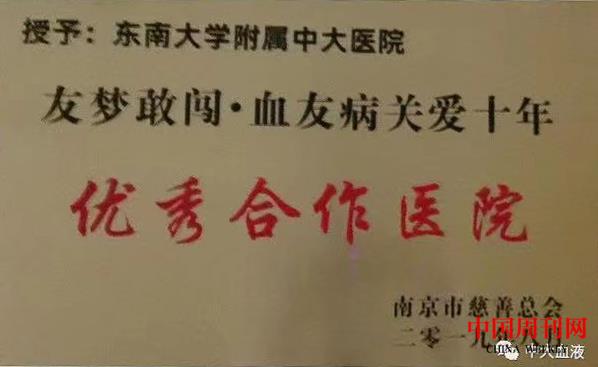 授予：东南大学附属中大医院
友梦敢闯·血友病关爱十年
优秀合作医院
南京市慈善总会
二零一九年八月
中国周刊网
CHINA WEEKLY
中大血液